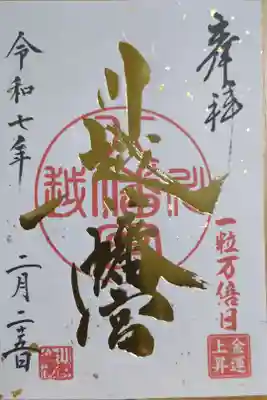 奉拝
一粒万倍日
金運
上昇
川越八幡宮
令和七年 二月二十五日